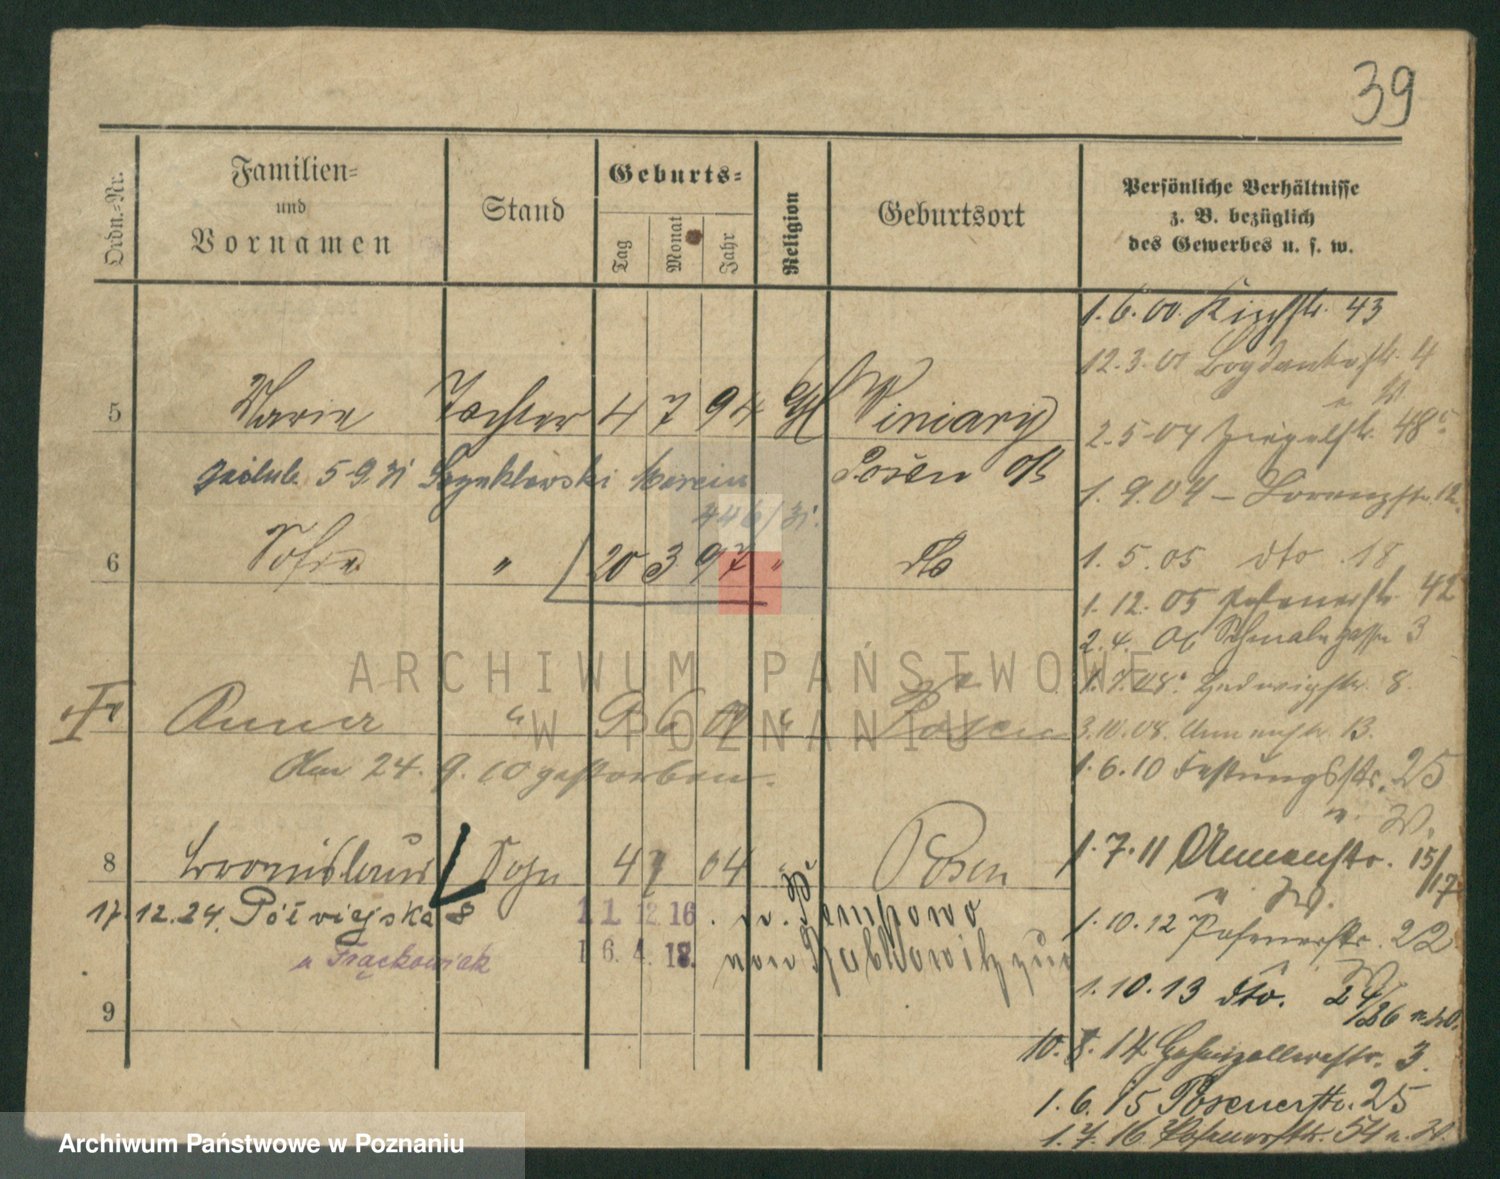 39
Ordn.-Nr.
Familien-
und
Vornamen
Stand
Geburts-
Tag
Monat
Jahr
Religion
Geburtsort
Persönliche Verhältnisse
z. B. bezüglich
des Gewerbes u. s. w.
1.6.00. 43
12.3.01 Bogdankastr. 4
u W
5 Marie Tochter 4 7 94 Winiary
2.5.04 Ziegelstr. 48
5 9 31 Posen
1.9.04 – Lorenzstr. 12.
446/31.
6 Sofia " 20 3 97 " dto
1.5.05 dto 18
1.12.05 Posenerstr. 42
2.4.06 Schmalegasse 3
ARCHIWUM PAŃSTWOWE
W POZNANIU
1.7.08. Hedwigstr. 8.
Anna " 9 6 " Posen
3.10.08. Annenstr. 13.
Am 24.9.10 gestorben.
1.6.10 Festungsstr. 25
u. W.
8 Bronislaus Sohn 4 7 04 Posen
1.7.11 Annenstr. 15/17
u. W.
17.12.24. Półwiejska 8
11 12 16. n. Kempowo
1.10.12 Posenerstr. 22
u Frąckowiak
16. 4. 18. von
W
1.10.13 dto. 24/26 u. W.
9
10.8.14 Hohenzollernstr. 3.
1.6.15 Posenerstr. 25
1.7.16 Posenerstr. 54 u. W.
Archiwum Państwowe w Poznaniu